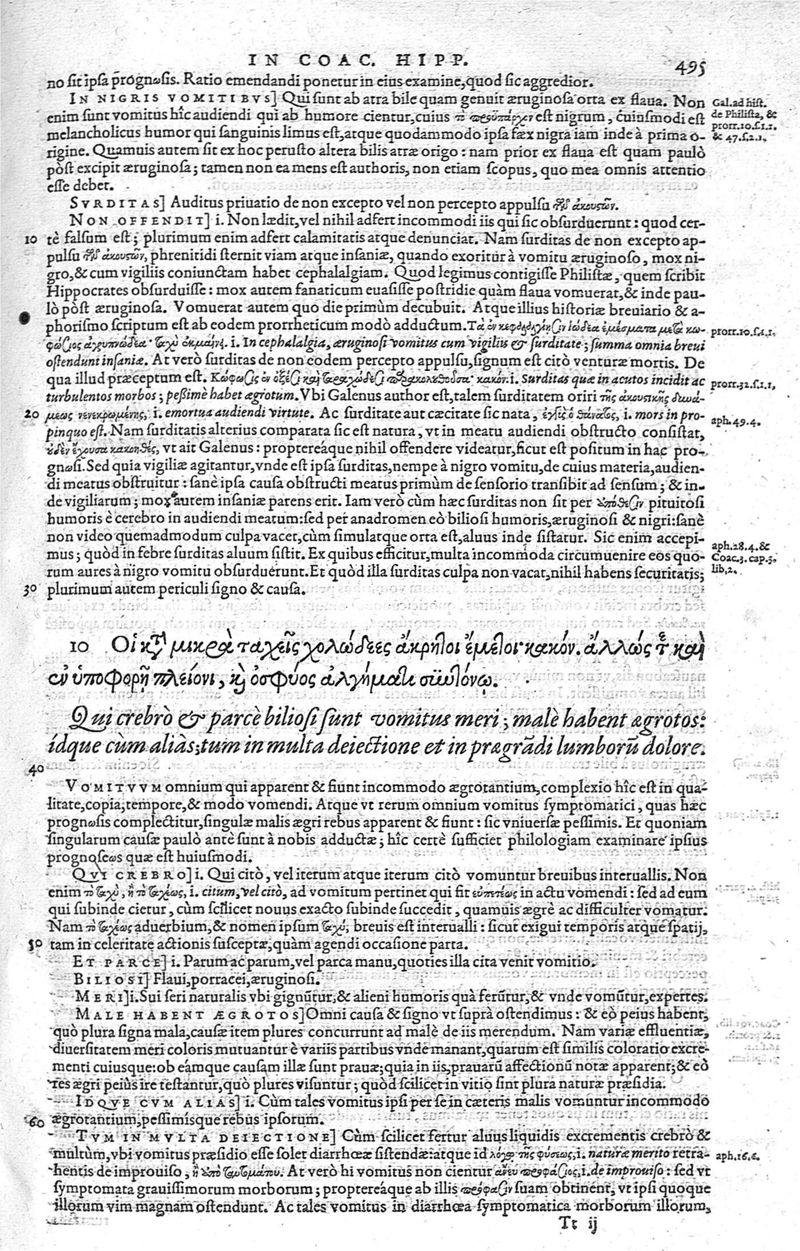 IN COAC. HIPP. 495
no sit ipsa prognωsis. Ratio emendandi ponetur in eius examine, quod sic aggredior.
IN NIGRIS VOMITIBVS] Qui sunt ab atra bile quam genuit æruginosa orta ex flaua. Non
enim sunt vomitus hîc audiendi qui ab humore cientur, cuius est nigrum, cuiusmodi est
melancholicus humor qui sanguinis limus est, atque quodammodo ipsa fæx nigra iam inde à prima o-
rigine. Quamuis autem sit ex hoc perusto altera bilis atræ origo: nam prior ex flaua est quam paulò
pòst excipit æruginosa; tamen non ea mens est authoris, non etiam scopus, quo mea omnis attentio
esse debet.
Gal. ad hist.
de Philista, &
prorr. 10. s. 1. 1.
& 47. s. 2. 1.
SVRDITAS] Auditus priuatio de non excepto vel non percepto appulsu τῶν ἀκουστῶν.
NON OFFENDIT] i. Non lædit, vel nihil adfert incommodi iis qui sic obsurduerunt: quod cer-
10 tè falsum est; plurimum enim adfert calamitatis atque denunciat. Nam surditas de non excepto ap-
pulsu τῶν ἀκουστῶν, phrenitidi sternit viam atque insaniæ, quando exoritur à vomitu æruginoso, mox ni-
gro, & cum vigiliis coniunctam habet cephalalgiam. Quod legimus contigisse Philistæ, quem scribit
Hippocrates obsurduisse: mox autem fanaticum euasisse postridie quàm flaua vomuerat, & inde pau-
lò pòst æruginosa. Vomuerat autem quo die primùm decubuit. Atque illius historiæ breuiario & a-
phorismo scriptum est ab eodem prorrheticum modò adductum. Τὰ ἐν κεφαλαλγίῃσιν ἰώδεα ἐμέσματα μετὰ κω-
φώσιος ἀγρυπνώδεα· ταχὺ ἐκμαίνει. i. In cephalalgia, æruginosi vomitus cum vigiliis & surditate; summa omnia breui
ostendunt insaniæ. At verò surditas de non eodem percepto appulsu, signum est citò venturæ mortis. De
prorr. 10. s. 1. 1.
qua illud præceptum est. Κώφωσις ἐν ὀξέσι καὶ ταραχώδεσι παρακολουθοῦσα· κακόν. i. Surditas quæ in acutos incidit ac
turbulentos morbos; peßimè habet ægrotum. Vbi Galenus author est, talem surditatem oriri τῆς ἀκουστικῆς δυνά-
prorr. 32. s. 1. 1,
20 μεως νενεκρωμένης, i. emortua audiendi virtute. Ac surditate aut cæcitate sic nata, ἐγγὺς ὁ θάνατος, i. mors in pro-
pinquo est. Nam surditatis alterius comparata sic est natura, vt in meatu audiendi obstructo consistat,
aph. 49. 4.
οὐδὲν ἔχουσα κακοηθές, vt ait Galenus: proptereáque nihil offendere videatur, sicut est positum in hac pro-
gnωsi. Sed quia vigiliæ agitantur, vnde est ipsa surditas, nempe à nigro vomitu, de cuius materia, audien-
di meatus obstruitur: sanè ipsa causa obstructi meatus primùm de sensorio transibit ad sensum; & in-
de vigiliarum; mox autem insaniæ parens erit. Iam verò cùm hæc surditas non sit per pituitosi
humoris è cerebro in audiendi meatum: sed per anadromen eò biliosi humoris, æruginosi & nigri: sanè
non video quemadmodum culpa vacet, cùm simulatque orta est, aluus inde sistatur. Sic enim accepi-
mus; quòd in febre surditas aluum sistit. Ex quibus efficitur, multa incommoda circumuenire eos quo-
rum aures à nigro vomitu obsurduerunt. Et quòd illa surditas culpa non vacat, nihil habens securitatis;
30 plurimum autem periculi signo & causa.
aph. 28. 4. &
Coac. 3. cap. 5.
lib. 2.
10 Οἱ κατὰ μικρὰ ταχεῖς χολώδεες ἄκρητοι ἔμετοι· κακόν. ἄλλως τε καὶ
ἐν ὑποφορῇ πλείονι, καὶ ὀσφύος ἀλγήματι συντόνῳ.
Qui crebrò & parcè biliosi sunt vomitus meri; malè habent ægrotos:
ídque cùm aliàs; tum in multa deiectione et in prægrãdi lumborũ dolore.
40
VOMITVVM omnium qui apparent & fiunt incommodo ægrotantium, complexio hîc est in qua-
litate, copia, tempore, & modo vomendi. Atque vt rerum omnium vomitus symptomatici, quas hæc
prognωsis complectitur, singulæ malis ægri rebus apparent & fiunt: sic vniuersæ pessimis. Et quoniam
singularum causæ paulò antè sunt à nobis adductæ; hîc certè sufficiet philologiam examinare ipsius
prognoseωs quæ est huiusmodi.
QVI CREBRO] i. Qui citò, vel iterum atque iterum citò vomuntur breuibus interuallis. Non
enim τὸ ταχὺ, ἢ τὸ ταχέως, i. citum, vel citò, ad vomitum pertinet qui fit εὐπετέως in actu vomendi: sed ad eum
qui subinde cietur, cùm scilicet nouus exacto subinde succedit, quamuis ægrè ac difficulter vomatur.
Nam τὸ ταχέως aduerbium, & nomen ipsum ταχύ; breuis est interualli: sicut exigui temporis atque spatij,
50 tam in celeritate actionis susceptæ, quàm agendi occasione parta.
ET PARCE] i. Parum ac parum, vel parca manu, quoties illa cita venit vomitio.
BILIOSI] Flaui, porracei, æruginosi.
MERI] i. Sui seri naturalis vbi gignũtur, & alieni humoris quà ferũtur, & vnde vomũtur, expertes.
MALE HABENT ÆGROTOS] Omni causa & signo vt suprà ostendimus: & eò peius habent,
quò plura signa mala, causæ item plures concurrunt ad malè de iis merendum. Nam variæ effluentiæ,
diuersitatem meri coloris mutuantur è variis partibus vnde manant, quarum est similis coloratio excre-
menti cuiusque: ob eámque causam illæ sunt prauæ; quia in iis, prauarũ affectionũ notæ apparent; & eò
res ægri peius ire testantur, quò plures visuntur; quòd scilicet in vitio sint plura naturæ præsidia.
IDQVE CVM ALIAS] i. Cùm tales vomitus ipsi per se in cæteris malis vomuntur incommodo
60 ægrotantium, pessimisque rebus ipsorum.
TVM IN MVLTA DEIECTIONE] Cùm scilicet fertur aluus liquidis excrementis crebrò &
multùm, vbi vomitus præsidio esse solet diarrhœæ sistendæ: atque id λόγῳ τῆς φύσεως, i. naturæ merito retra-
hentis de improuiso, ἢ ὑπὸ ταυτομάτου. At verò hi vomitus non cientur ἄνευ προφάσιος, i. de improuiso: sed vt
aph. 16. 6.
symptomata grauissimorum morborum; proptereáque ab illis πρόφασιν suam obtinent, vt ipsi quoque
illorum vim magnam ostendunt. Ac tales vomitus in diarrhœa symptomatica morborum illorum,
Tt ij